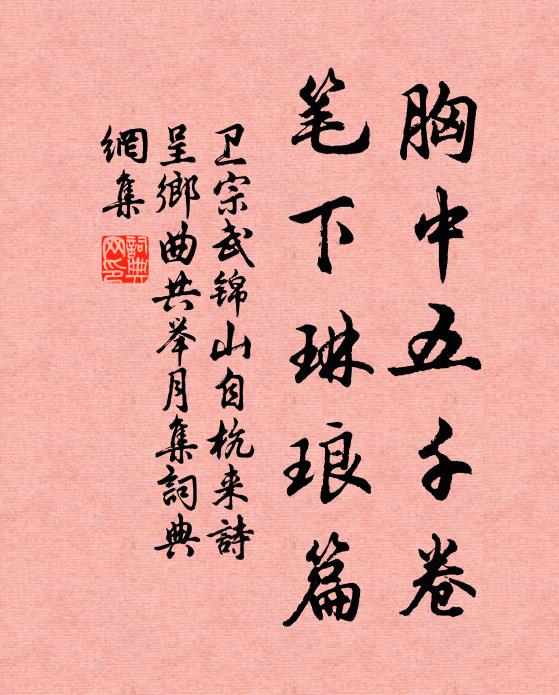 胸中五千卷
笔下琳琅篇
卫宗武锦山自杭来詩
呈鄉曲共举月集詞典
網集
詞典网印